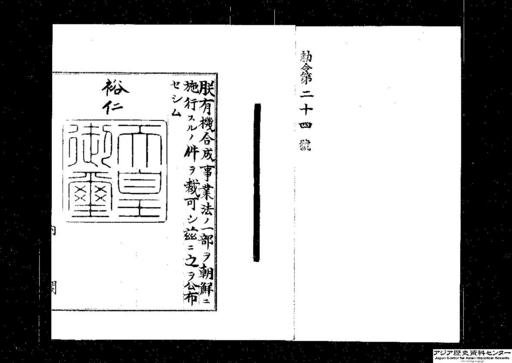 勅令第二十四號
朕有機合成事業法ノ一部ヲ朝鮮ニ
施行スルノ件ヲ裁可シ茲ニ之ヲ公布
セシム
裕仁
天皇
御璽
内閣
アジア歴史資料センター
Japan Center for Asian Historical Records